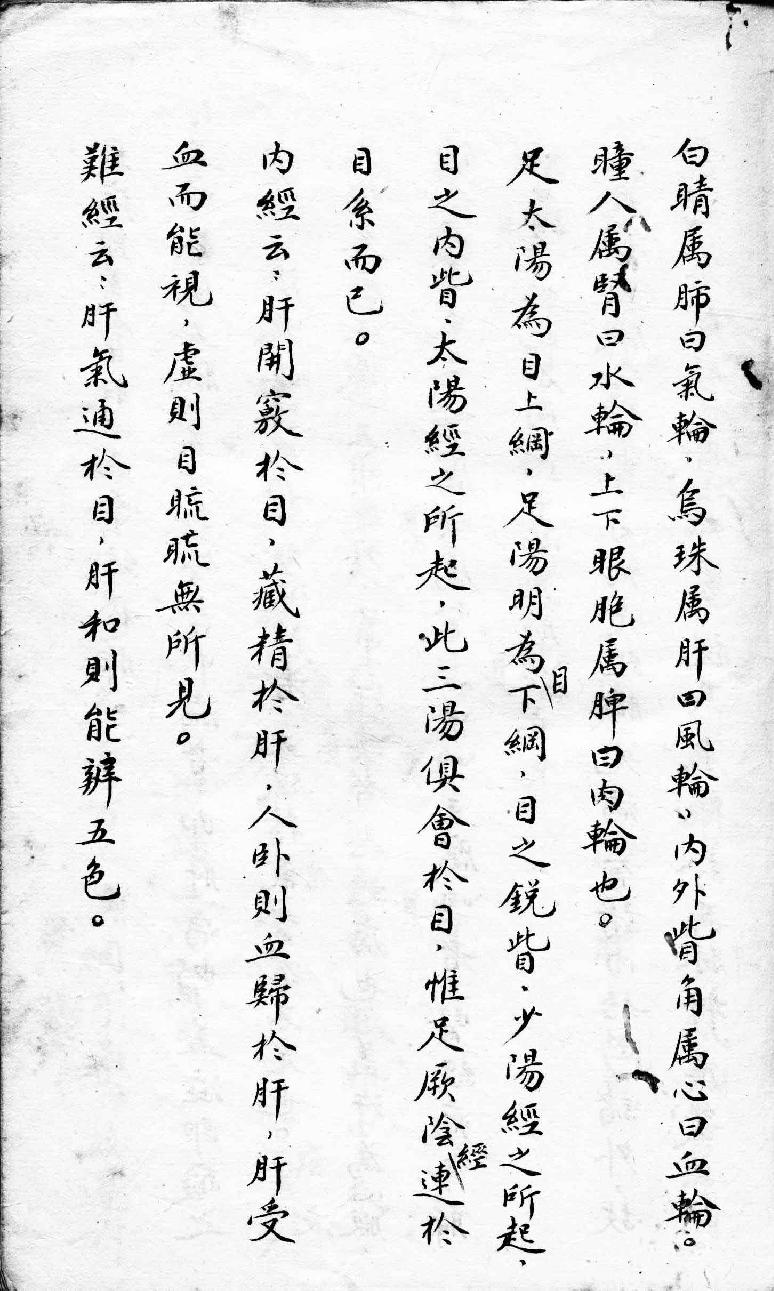 白睛属肺曰氣輪，烏珠属肝曰風輪，内外眥角属心曰血輪。
瞳人属腎曰水輪，上下眼胞属脾曰肉輪也。
足太陽為目上綱，足陽明為目下綱，目之鋭眥，少陽經之所起，
目之内眥，太陽經之所起，此三陽俱會於目，惟足厥陰經連於
目系而已。
内經云：肝開竅於目，藏精於肝，人卧則血歸於肝，肝受
血而能視，虛則目䀮䀮無所見。
難經云：肝氣通於目，肝和則能辨五色。